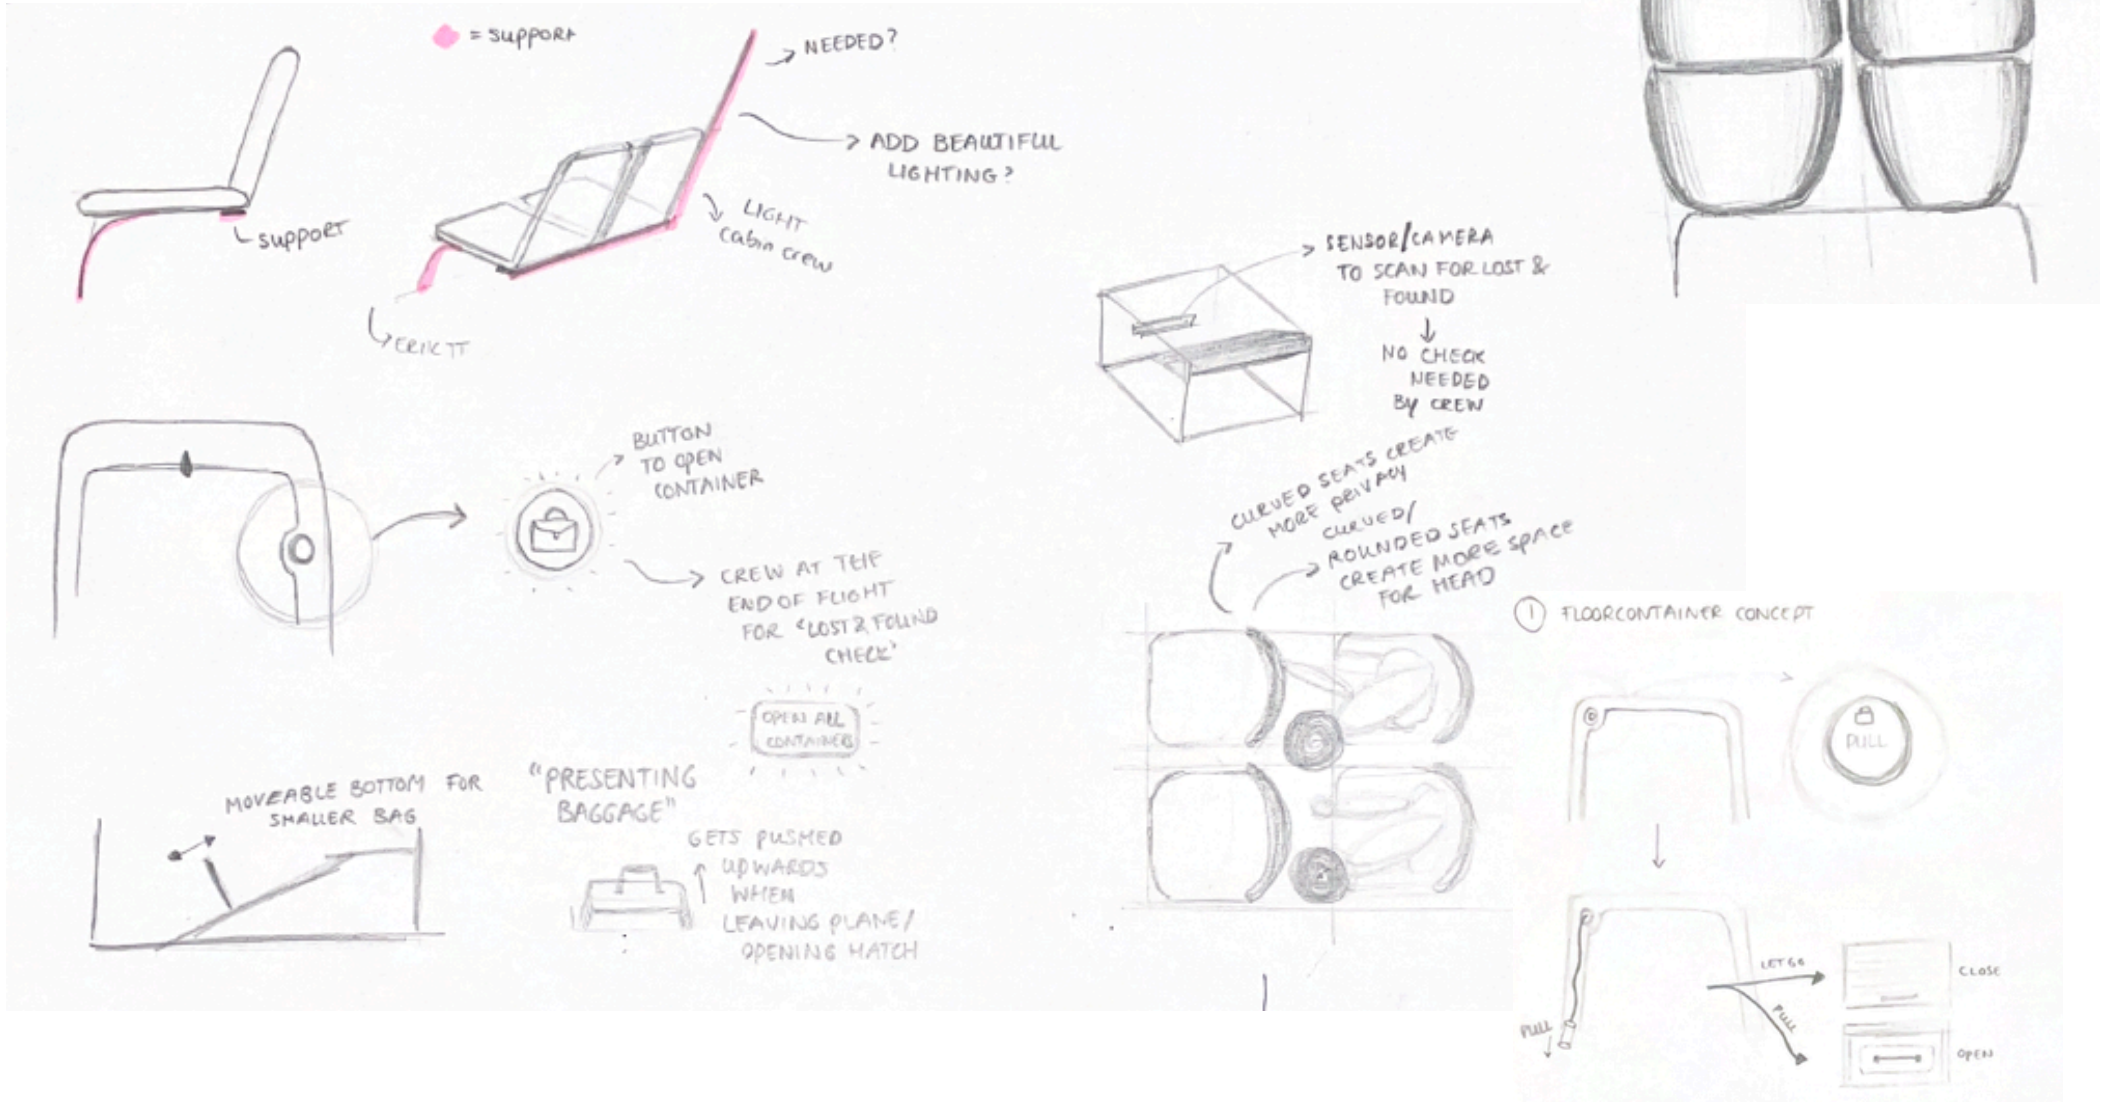 = SUPPORT
NEEDED?
ADD BEAUTIFUL
LIGHTING?
LIGHT
cabin crew
SUPPORT
SENSOR/CAMERA
TO SCAN FOR LOST &
FOUND
NO CHECK
NEEDED
BY CREW
BUTTON
TO OPEN
CONTAINER
CREW AT THE
END OF FLIGHT
FOR "LOST & FOUND
CHECK"
OPEN ALL
CONTAINERS
CURVED SEATS CREATE
MORE PRIVACY
CURVED/
ROUNDED SEATS
CREATE MORE SPACE
FOR HEAD
MOVEABLE BOTTOM FOR
SMALLER BAG
"PRESENTING
BAGGAGE"
GETS PUSHED
UPWARDS
WHEN
LEAVING PLANE/
OPENING HATCH
1 FLOORCONTAINER CONCEPT
PULL
LET GO
PULL
PULL
CLOSE
OPEN